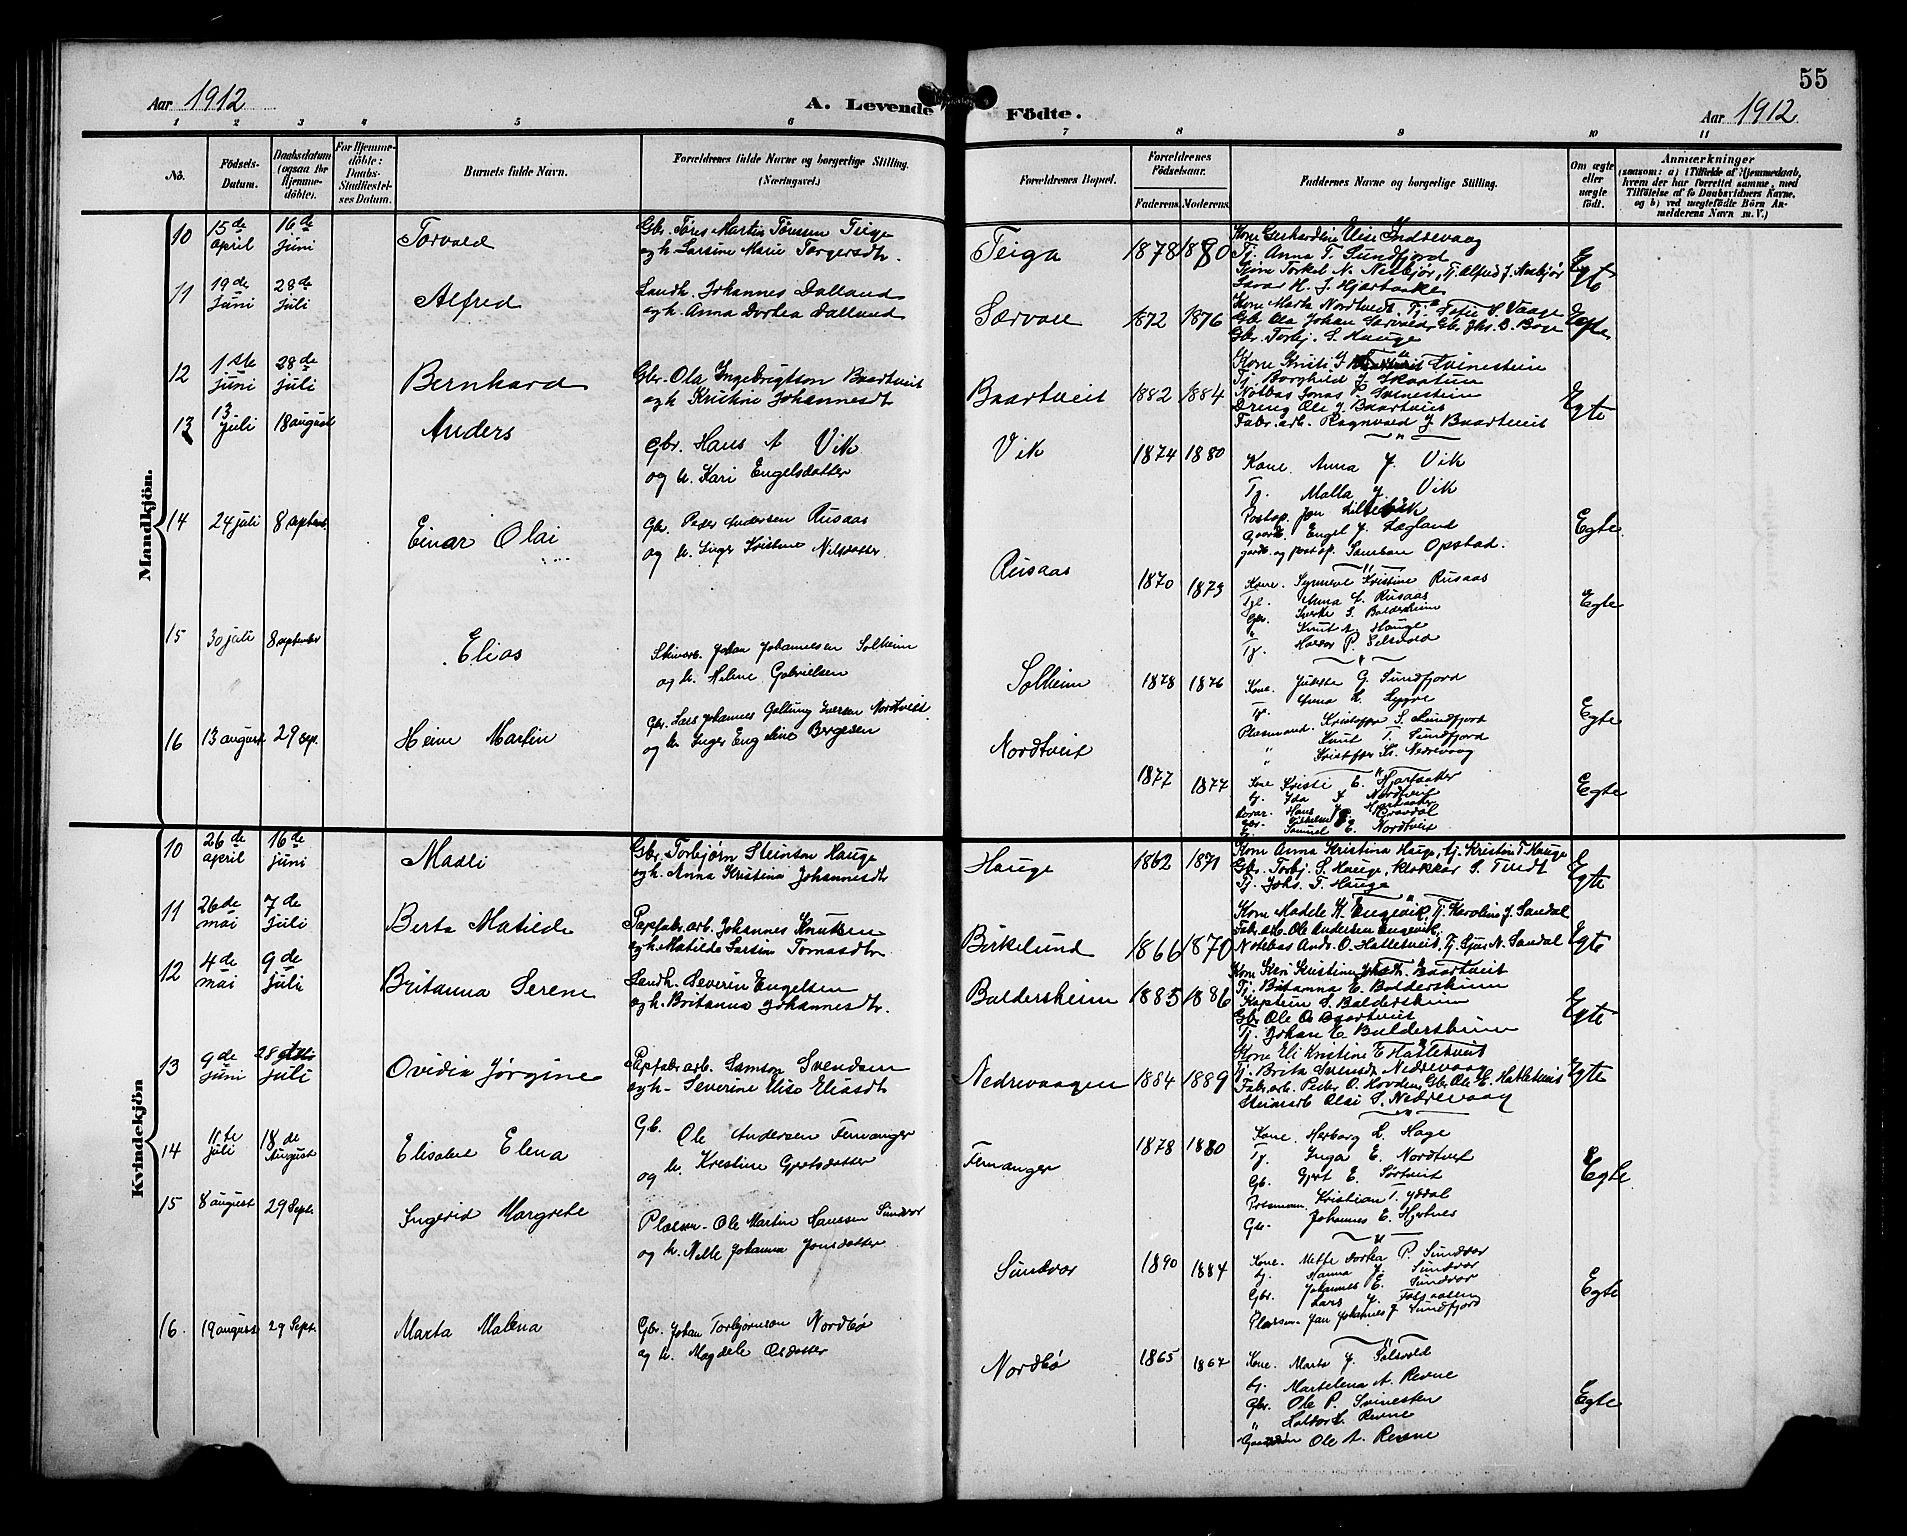 55
Aar 1912
A. Levende Födte.
Aar 1912.
1 2 3 4 5 6 7 8 9 10 11
No.
Födsels-Datum.
Daabsdatum (ogsaa for Hjemme-döbte).
For Hjemme-döbte: Daabs-Stadfæstel-ses Datum.
Barnets fulde Navn.
Forældrenes fulde Navne og borgerlige Stilling. (Næringsvei.)
Forældrenes Bopæl.
Forældrenes Födselsaar.
Faderens. Moderens.
Faddernes Navne og borgerlige Stilling.
Om ægte eller uægte födt.
Anmærkninger
(saasom: a) i Tilfælde af Hjemmedaab, hvem der har forrettet samme, med Tilföielse af to Daabsvidners Navne, og b) ved uegtefödte Börn An-melderens Navn m. V.)
Mandkjön.
10 15de april 16de Juni Torvald
Gbr. Tøres Martin Tønesen Teige
og h. Larsine Marie Torgersdtr.
Teiga 1878 1880
Tj. Anna T. Sundfjord
Egte
11 19de Juni 28de Juli Alfred
Landh. Johannes Dalland
og h. Anna Dortea Dalland
Særvoll 1872 1876
Kone Marta Nordtvedt, Tj. Sofie S. Vaage
Gbr. Ola Johan Særvold, Gbr. Jhs. B. Boge
Gbr. Torbj. S. Hauge
Egte
12 1ste Juni 28de Juli Bernhard
Gbr. Ola Ingebrigtson Baartveit
og h. Kristine Johannesdt
Baartveit 1882 1884
Tj. Borghild J. Skaatun
Notbas Jonas P. Svinestein
Dreng Ole J. Baartveit
Fabr. arb. Ragnvald J. Baartveit
Egte
13 13 juli 18 august Anders
Gbr. Hans A Vik
og h. Kari Engelsdatter
Vik 1874 1880
Kone. Anna J. Vik
Tj. Malla J. Vik
Postop. Jon Lillebvik
Gaardb. Engel J. Lægland
gardb. og post op. Samban Opstad.
Egte
14 24 juli 8 septemb. Einar Olai
Gbr. Peder Andersen Rusaas
og h. Inger Kristine Nilsdatter
Rusaas 1870 1873
Kone. Synneve Kristine Rusaas
Tj. Anna L. Rusaas
Gbr. Sverke S. Baldersheim
" Knut A. Hauge
Tj. Haldor P. Selsvold
Egte
15 30 juli 8 september Elias
Stenarb. Johan Johannesen Solheim
og h. Helene Gabrielsen
Solheim 1878 1876
Kone. Jukste G. Sundfjord
Tj. Anna H. Lygre
Plasmand. Kristoffer S. Sundfjord
Knut T. Sundfjord
" Kristoffer Kr. Nedrevaag
Egte
16 13 august 29 sep. Heine Martin
Gbr. Lars Johannes Galtung Iversen Nordtveit
og h. Inger Engeline Bergesen
Nordtveit 1877 1877
Kone Kristi E. Hjartaaker
tj. Ida J. Nordtveit
Gbr. Samuel E. Nordtveit
Egte
Kvindekjön
10 26de april 16de juni Madli
Gbr. Torbjørn Steinson Hauge
og h. Anna Kristina Johannesdtr
Hauge 1862 1871
Kone Anna Kristina Hauge, tj. Kristine T. Hauge
Gbr. Torbj. S. Hauge, Klokkar S. Tindt
Tj. Johs. T. Hauge
Egte
11 26de mai 7de juli Berta Matilde
Papfabr. arb. Johannes Knutsen
og h. Matilde Larsine Tomasdtr
Birkelund 1866 1870
Kone Madele K. Engevik, Tj. Karoline J. Sandal
Fabr. arb. Ole Andersen Engevik,
Notebas Andr. O. Hatletveit, Tj. Sjur N. Sandal
Egte
12 4de mai 9de Juli Britanna Serene
Landh. Severin Engelsen
og h. Britanna Johannesdtr.
Baldersheim 1885 1886
Kone Kari Kristine Johsdtr. Baartveit
Tj. Britanna E. Baldersheim
Kaptein S. Baldersheim
Gbr Ole O Baartveit
Tj. Johan E. Baldersheim
Egte
13 9de Juni 28 Juli Ovidia Jørgine
Papfabr. arb. Samson Svendsen
og h. Severine Elise Eliasdt
Nedrevaagen 1884 1889
Kone Eli Kristine E Hatletveit
Tj. Brita Svensdt Nedrevaag
Fabr. arb. Peder O. Hovden, Gbr. Ole E. Hatletveit
Steinarb Olai S. Nedrevaag
Egte
14 11te juli 18de August Elisabet Elena
Gb. Ole Andersen Femanger
og h. Kristine Gjertsdatter
Femanger 1878 1880
Kone. Herborg L. Hage
Tj. Inga E. Nordtveit
Gb. Gjert E. Sørtveit
Kristian T. Yddal
Gbr. Johannes E. Hjertnes
Egte
15 8 august 29 Septe Ingerid Margrete
Plassm. Ole Martin Hanssen Sundvor
og h. Nelle Johanna Jonsdatter
Sundvor 1890 1884
Kone. Mette Dortea P. Sundvor
tj. Hanna J. Sundvor
Gbr. Johannes E. Sundvor
Lars J.
Plassm. Jan Johannes J Sundfjord
Egte
16. 19 august 29 Sept. Marta Malena
Gbr. Johan Torbjørnson Nordbø
og h. Magdele Olsdatter
Nordbø 1865 1867
Kone. Marta J. Sølsvold
tj. Martelena A. Revne
Gbr. Ole P. Svinesten
" Haldor L. Revne
Ole A. Revne
Egte